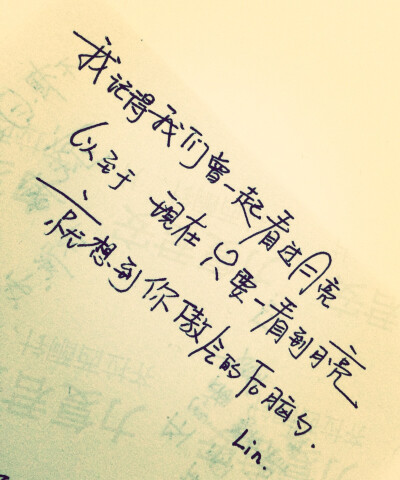 我记得我们曾一起看过月亮
以至于 现在 只要一看到月亮
就想到你傲的后脑勺.
Lin.
力复君